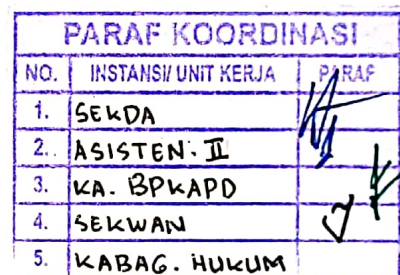 PARAF KOORDINASI
NO. INSTANSI/ UNIT KERJA PARAF
1. SEKDA
2. ASISTEN. II
3. KA. BPKAPD
4. SEKWAN
5. KABAG. HUKUM